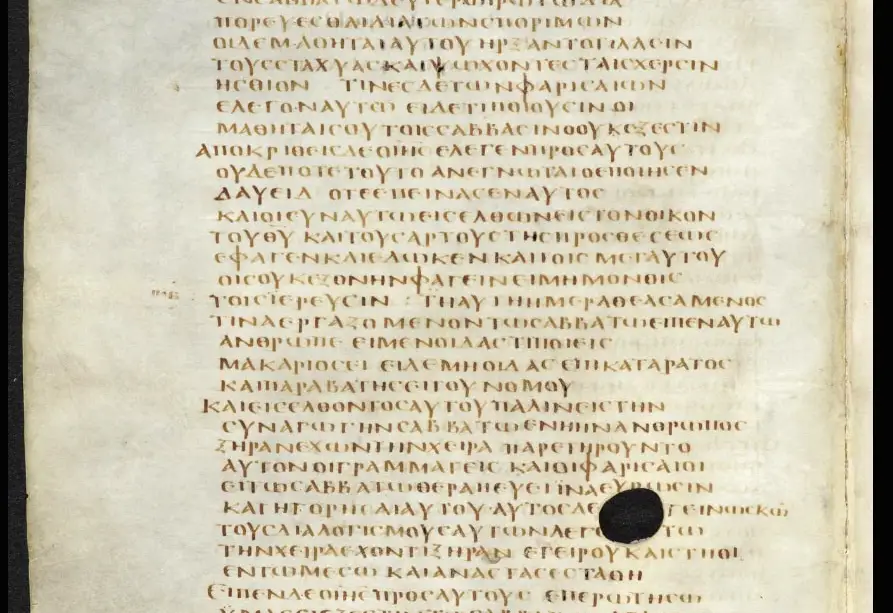 ΠΟΡΕΥΕCΘΑΙΔΙΑΤΩΝCΠΟΡΙΜΩΝ
ΟΙΔΕΜΑΘΗΤΑΙΑΥΤΟΥΗΡΞΑΝΤΟΤΙΛΛΕΙΝ
ΤΟΥCCΤΑΧΥΑCΚΑΙΨΩΧΟΝΤΕCΤΑΙCΧΕΡCΙΝ
ΗCΘΙΟΝ ΤΙΝΕCΔΕΤΩΝΦΑΡΙCΑΙΩΝ
ΕΛΕΓΟΝΑΥΤΩ ΕΙΔΕΤΙΠΟΙΟΥCΙΝΟΙ
ΜΑΘΗΤΑΙCΟΥΤΟΙCCΑΒΒΑCΙΝΟΟΥΚΕΞΕCΤΙΝ
ΑΠΟΚΡΙΘΕΙCΔΕΟΙΗC ΕΛΕΓΕΝΠΡΟCΑΥΤΟΥC
ΟΥΔΕΠΟΤΕΤΟΥΤΟ ΑΝΕΓΝΩΤΑΙΟΕΠΟΙΗCΕΝ
ΔΑΥΕΙΔ ΟΤΕΕΠΕΙΝΑCΕΝΑΥΤΟC
ΚΑΙΟΙCΥΝΑΥΤΩΕΙCΕΛΘΩΝΕΙCΤΟΝΟΙΚΟΝ
ΤΟΥΘΥ ΚΑΙΤΟΥCΑΡΤΟΥCΤΗCΠΡΟCΘΕCΕΩC
ΕΦΑΓΕΝΚΑΙΕΔΩΚΕΝΚΑΙΤΟΙCΜΕΤΑΥΤΟΥ
ΟΙCΟΥΚΕΞΟΝΗΝΦΑΓΕΙΝΕΙΜΗΜΟΝΟΙC
ΤΟΙCΪΕΡΕΥCΙΝ : ΤΗΑΥΤΗΗΜΕΡΑΘΕΑCΑΜΕΝΟC
ΤΙΝΑΕΡΓΑΖΟΜΕΝΟΝΤΩCΑΒΒΑΤΩΕΙΠΕΝΑΥΤΩ
ΑΝΘΡΩΠΕ ΕΙΜΕΝΟΙΔΑCΤΙΠΟΙΕΙC
ΜΑΚΑΡΙΟCΕΙ ΕΙΔΕΜΗΟΙΔΑCΕΠΙΚΑΤΑΡΑΤΟC
ΚΑΙΠΑΡΑΒΑΤΗCΕΙΤΟΥΝΟΜΟΥ
ΚΑΙΕΙCΕΛΘΟΝΤΟCΑΥΤΟΥΠΑΛΙΝΕΙCΤΗΝ
CΥΝΑΓΩΓΗΝCΑΒΒΑΤΩΕΝΗΗΝΑΝΘΡΩΠΟC
ΞΗΡΑΝΕΧΩΝΤΗΝΧΕΙΡΑ ΠΑΡΕΤΗΡΟΥΝΤΟ
ΑΥΤΟΝΟΙΓΡΑΜΜΑΤΕΙC ΚΑΙΟΙΦΑΡΙCΑΙΟΙ
ΕΙΤΩCΑΒΒΑΤΩΘΕΡΑΠΕΥΕΙΪΝΑΕΥΡΩCΙΝ
ΚΑΤΗΓΟΡΗCΑΙΑΥΤΟΥ·ΑΥΤΟCΔΕ ΓΕΙΝΩCΚΩ
ΤΟΥCΔΙΑΛΟΓΙCΜΟΥCΑΥΤΩΝΛΕΓΕ ΤΩ
ΤΗΝΧΕΙΡΑΕΧΟΝΤΙΞΗΡΑΝ ΕΓΕΙΡΟΥΚΑΙCΤΗΘΙ
ΕΝΤΩΜΕCΩ ΚΑΙΑΝΑCΤΑCΕCΤΑΘΗ
ΕΙΠΕΝΔΕΟΙΗCΠΡΟCΑΥΤΟΥC ΕΠΕΡΩΤΗCΩ